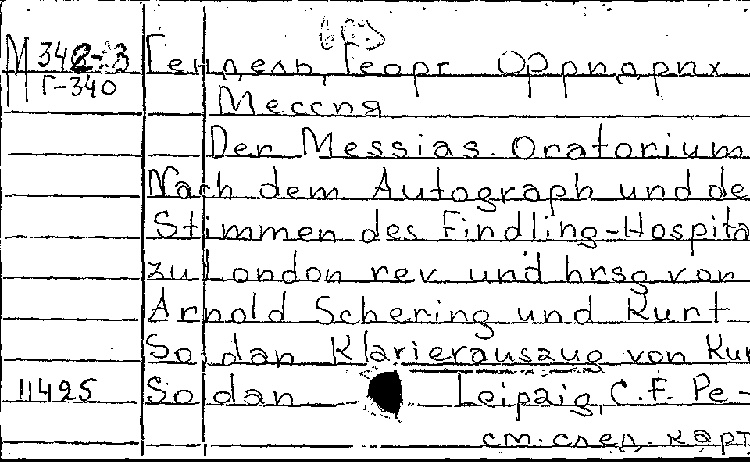 М 342-3 Гендель, Георг Фридрих
Г-340
Мессия
Der Messias. Oratorium
Nach dem Autograph und de
Stimmen des Findling-Hospita
zu London rev und hrsg von
Arnold Schering und Kurt
Soldan Klavierauszug von Kur
11425 Soldan Leipzig, C. F. Pe-
см. след. карт